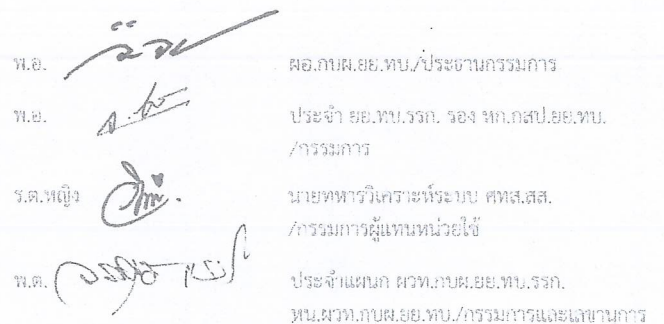 พ.อ. ผอ.กบผ.ยย.ทบ./ประธานกรรมการ
พ.อ. ประจำ ยย.ทบ.รรก. รอง หก.กสป.ยย.ทบ.
/กรรมการ
ร.ต.หญิง นายทหารวิเคราะห์ระบบ ศทส.สส.
/กรรมการผู้แทนหน่วยใช้
พ.ต. ประจำแผนก ผวท.กบผ.ยย.ทบ.รรก.
หน.ผวท.กบผ.ยย.ทบ./กรรมการและเลขานุการ